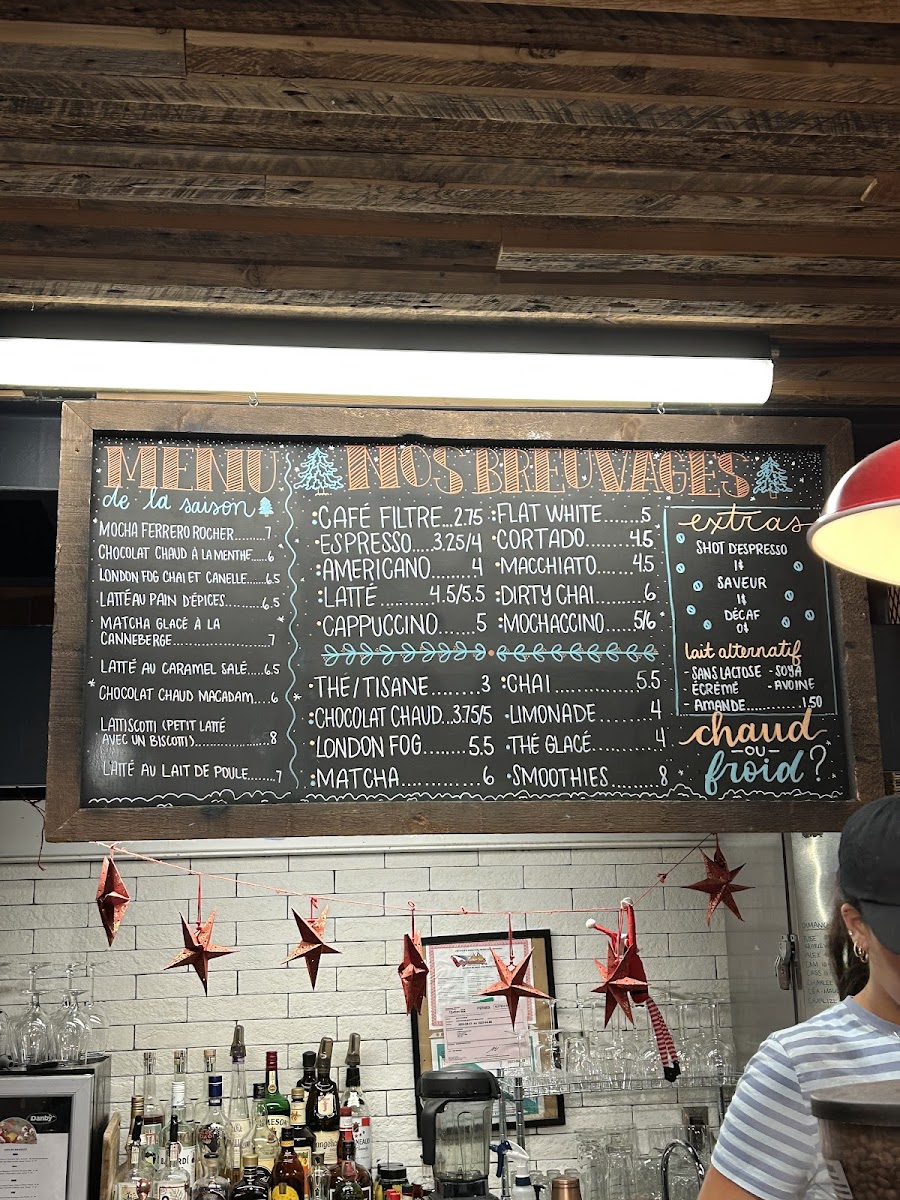 MENU
de la saison
MOCHA FERRERO ROCHER.........7
CHOCOLAT CHAUD À LA MENTHE.....6
LONDON FOG CHAI ET CANELLE......6.5
LATTÉ AU PAIN D'ÉPICES.........6.5
MATCHA GLACÉ À LA
CANNEBERGE.....................7
LATTÉ AU CARAMEL SALÉ....6.5
CHOCOLAT CHAUD MACADAM....6
LATTISCOTTI (PETIT LATTÉ
AVEC UN BISCOTTI)..................8
LATTÉ AU LAIT DE POULE.......7
NOS BREUVAGES
CAFÉ FILTRE...2.75
ESPRESSO....3.25/4
AMERICANO.......4
LATTÉ..........4.5/5.5
CAPPUCCINO.......5
FLAT WHITE.......5
CORTADO........4.5
MACCHIATO.......4.5
DIRTY CHAI.........6
MOCHACCINO.....5/6
THÉ/TISANE........3
CHOCOLAT CHAUD...3.75/5
LONDON FOG........5.5
MATCHA...............6
CHAI...............5.5
LIMONADE.........4
THÉ GLACÉ...........4
SMOOTHIES.........8
extras
SHOT D'ESPRESSO
1$
SAVEUR
1$
DÉCAF
0$
lait alternatif
- SANS LACTOSE - SOYA
- ÉCRÉMÉ - AVOINE
- AMANDE..............1.50
chaud
-OU-
froid?
Danby